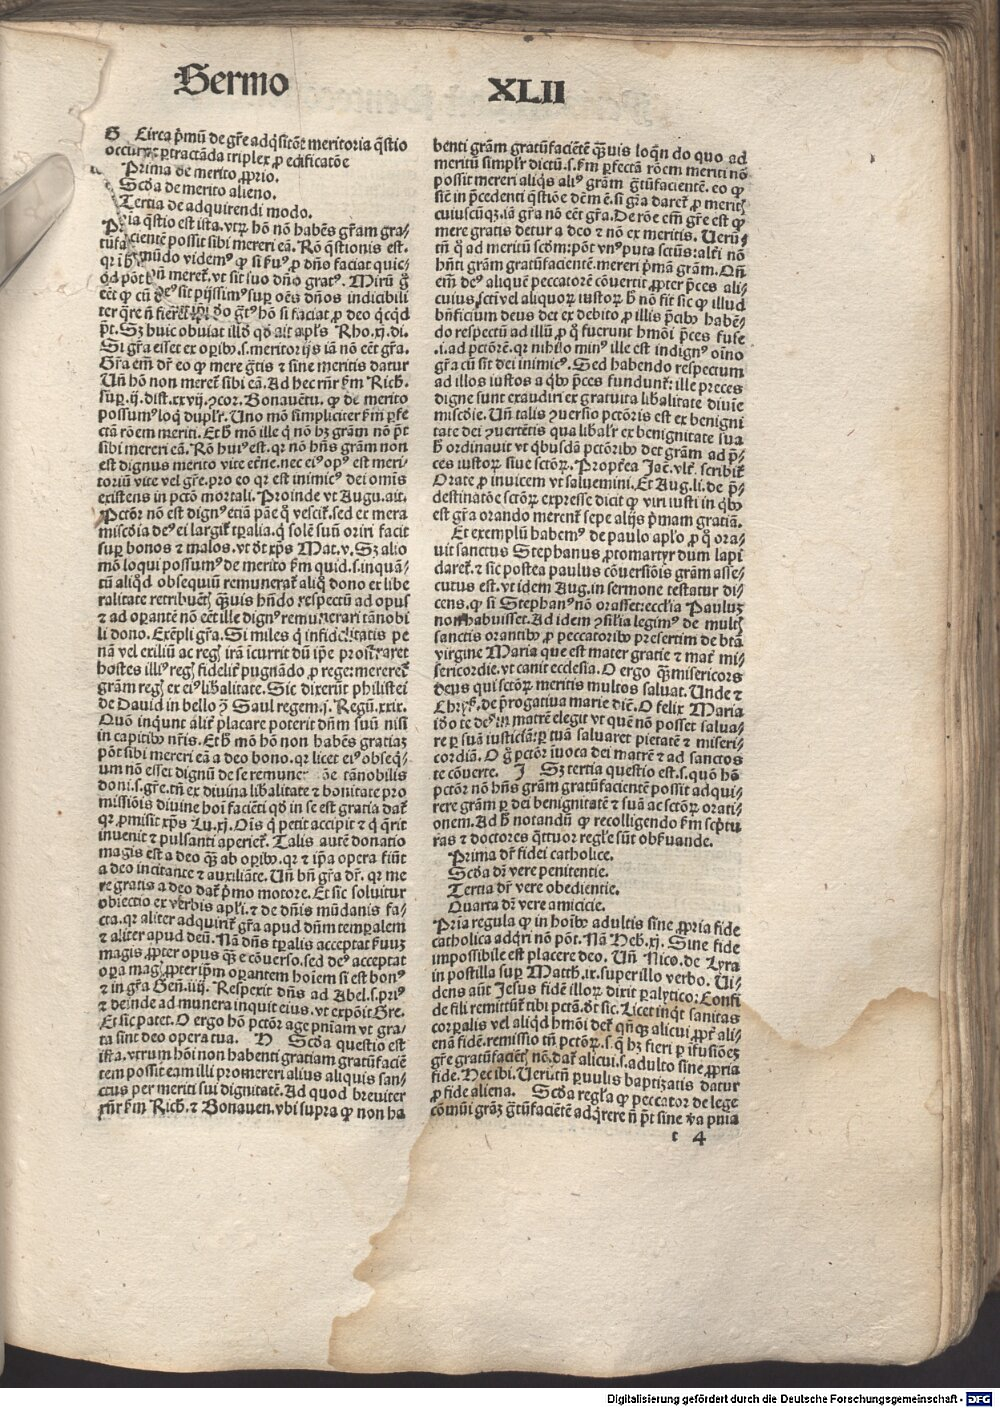 Sermo XLII
G Circa p̄mū de gr̄e adq̄sitōe meritoria q̄stio
occurrit ꝑtractāda triplex ꝓ edificatōe
Prima de merito ꝓprio.
Scd̄a de merito alieno.
Tertia de adquirendi modo.
q̄stio est ista. vtꝝ hō nō habēs gr̄am gra-
cientē possit sibi mereri eā. Rō q̄stionis est.
mūdo videmꝰ ꝙ si ꝓ dn̄o faciat quic-
vt sit suo dn̄o gratꝰ. Mirū
ēēt ꝙ cū deꝰ sit pijssimꝰ suꝑ oēs dn̄os indicibili
hō si faciat ꝓ deo q̄cqd
pt̄. Sꝫ huic obuiat illd̄ qd̄ ait apl̄s Rho. xj. di.
Si gr̄a esset ex oꝑibꝰ .s. meritorijs iā nō ēēt gr̄a.
Gr̄a em̄ dr̄ eo ꝙ mere gr̄tis ⁊ sine meritis datur
Vn̄ hō non meret̄ sibi eā. Ad hec rn̄r km̄ Rich.
suꝑ .ij. dist. xxvij. ⁊cor. Bonauētu. ꝙ de merito
possumꝰ loq̄ duplr̄. Uno mō simpliciter km̄ ꝑfe
ctā rōem meriti. Et h̄ mō ille q̄ nō hꝫ grām nō pt̄
sibi mereri eā. Rō huiꝰ est. qr nō hn̄s grām non
est dignus merito vite et̄ne. nec eiꝰ opꝰ est meri-
toriū vite vel gr̄e. pro eo qr est inimicꝰ dei omīs
existens in pctō mortali. Proinde vt Augu. ait.
Pctōr nō est dignꝰ etiā pāe q̄ vescit̄. sed ex mera
miscd̄ia deꝰ ei largit̄ tꝑalia. q̄ solē suū oriri facit
suꝑ bonos ⁊ malos. vt dt̄ xp̄s Mat. v. Sꝫ alio
mō loqui possumꝰ de merito km̄ quid .s. inquā-
tū aliq̄d obsequiū remunerat̄ aliq̄ dono et libe
ralitate retribuēt̄ꝭ q̄uis hn̄do respectū ad opus
⁊ ad oꝑantē nō ēēt ille dignꝰ remunerari tā nobi
li dono. Exēpli gr̄a. Si miles q̄ infidelitatis pe
nā vel exiliū ac regꝭ irā īcurrit dū ip̄e prosterneret
hostes illiꝰ regꝭ fidelit̄ pugnādo ꝓ rege: mereret̄
grām regꝭ ex eiꝰ libalitate. Sic dixerūt philistei
de Dauid in bello ꝯ̄ Saul regem. j. Regū. xxix.
Quō inqunt alit̄ placare poterit dn̄m suū nisi
in capitibꝰ nr̄is. Et h̄ mō hō non habēs gratiaꝫ
pōt sibi mereri eā a deo bono. qr licet eiꝰ obseq̄-
um nō esset dignū de se tā nobilis
doni .s. gr̄e. tn̄ ex diuina libalitate ⁊ bonitate pro
missiōis diuine hoī faciēti qd̄ in se est gratia dat̄
qr ꝓmisit xp̄s Lu. xj. Oīs q̄ petit accipit ⁊ q̄ q̄rit
inuenit ⁊ pulsanti aperiet̄. Talis autē donatio
magis est a deo q̄ꝫ ab oꝑibꝰ. qr ⁊ ip̄a opera fiūt
a deo incitante ⁊ auxiliāte. Un̄ bn̄ gr̄a dr̄. qr me
re gratis a deo dat̄ p̄mo motore. Et sic soluitur
obiectio ex verbis apl̄i. ⁊ de dn̄is mūdanis fa-
cta. qr aliter adquirit̄ gr̄a apud dn̄m temꝑalem
⁊ aliter apud deū. Nā dn̄s tꝑalis acceptat ẜuuꝫ
magis ꝓpter opus q̄ꝫ e cōuerso. sed deꝰ acceptat
oꝑa magꝭ ꝓpter ip̄m oꝑantem hoīem si est bonꝰ
⁊ in gr̄a Gen̄. iiij. Respexit dn̄s ad Abel .s. priꝰ
⁊ deinde ad munera inquit eius. vt expōit Gre.
Et sic patet. O ergo hō pctōr age pn̄iam vt gra-
ta sint deo opera tua. H Scd̄a questio est
ista. vtrum hōi non habenti gratiam gratūfaciē
tem possit eam illi promereri alius aliquis san-
ctus per meriti sui dignitatē. Ad quod breuiter
rn̄r km̄ Rich. ⁊ Bonauen. vbi supra ꝙ non ha
benti grām gratūfaciētē q̄uis loqn̄do quo ad
meritū simplr̄ dictū .s. km̄ ꝑfectā rōem meriti nō
possit mereri aliq̄s aliꝰ grām gr̄tūfacientē. eo ꝙ
sic̄ in p̄cedenti q̄stiōe dēm ē. si gr̄a daret̄ ꝓ meritꝭ
cuiuscūqꝫ. iā gr̄a nō ēēt gr̄a. De rōe em̄ gr̄e est ꝙ
mere gratis detur a deo ⁊ nō ex meritis. Uerū-
tn̄ q̄ ad meritū scdm: pōt vnꝰ puta sctūs: alt̄i nō
hn̄ti grām gratūfacientē. mereri p̄mā grām. Qn̄
em̄ deꝰ aliquē peccatorē cōuertit ꝓpter p̄ces ali-
cuius sc̄ti vel aliquoꝝ iustoꝝ h̄ nō fit sic ꝙ illud
bn̄ficium deus det ex debito ꝓ illis p̄cibꝰ habēn-
do respectū ad illū ꝓ q̄ fuerunt hmōi p̄ces fuse
.i. ad pctōrē. qr nihilo minꝰ ille est indignꝰ oīno
gr̄a cū sit dei inimicꝰ. Sed habendo respectum
ad illos iustos a q̄bꝰ p̄ces fundunt̄: ille preces
digne sunt exaudiri ex gratuita libalitate diuie
miscd̄ie. Un̄ talis ꝯuersio pctōris est ex benigni
tate dei ꝯuertētis qua libalr̄ ex benignitate sua
h̄ ordinauit vt q̄busdā pctōribꝰ det grām ad p̄-
ces iustoꝝ siue sctōꝝ. Propt̄ea Jac̄. vlt̄. scribit̄
Orate ꝓ inuicem vt saluemini. Et Aug. li. de p̄-
destinatōe sctōꝝ expresse dicit ꝙ viri iusti in q̄bꝰ
est gr̄a orando merent̄ sepe alijs p̄mam gratiā.
Et exemplū habemꝰ de paulo apl̄o ꝓ q̄ ora-
uit sanctus Stephanus ꝓtomartyr dum lapi-
daret̄. ⁊ sic postea paulus cōuersiōis grām asse-
cutus est. vt idem Aug. in sermone testatur di-
cens. ꝙ si Stephanꝰ nō orasset: eccl̄ia Pauluꝫ
non habuisset. Ad idem ꝯsilia legimꝰ de multꝭ
sanctis orantibꝰ ꝓ peccatoribꝰ presertim de btā
virgine Maria que est mater gratie ⁊ mat̄ mi-
sericordie. vt canit ecclesia. O ergo q̄ꝫ misericors
deus qui sctōꝝ meritis multos saluat. Unde ⁊
Chryẜ. de p̄rogatiua marie dic̄. O felix Maria
iō te deꝰ in matrē elegit vt quē nō posset salua-
re ꝑ suā iusticiā: ꝑ tuā saluaret pietatē ⁊ miseri-
cordiā. O ḡ pctōr īuoca dei matrē ⁊ ad sanctos
te cōuerte. J Sꝫ tertia questio est .s. quō hō
pctōr nō hn̄s grām gratūfacientē possit adqui-
rere grām ꝑ dei benignitatē ⁊ suā ac sctōꝝ orati-
onem. Ad h̄ notandū ꝙ recolligendo km̄ scptu
ras ⁊ doctores q̄ttuor regl̄e sūt obẜuande.
Prima dr̄ fidei catholice.
Scd̄a dr̄ vere penitentie.
Tertia dr̄ vere obedientie.
Quarta dr̄ vere amicicie.
Pria regula ꝙ in hoībꝰ adultis sine ꝓpria fide
catholica adqri nō pōt. Nā Heb. xj. Sine fide
impossibile est placere deo. Un̄ Nico. de Lyra
in postilla suꝑ Matth. ix. super illo verbo. Ui-
dens aūt Jesus fidē illoꝝ dixit ꝑalytico: Confi
de fili remittūt̄ tibi pctā. dt̄ sic. Licet inq̄t sanitas
corꝑalis vel aliqd̄ hmōi det̄ qn̄qꝫ alicui ꝓpt̄ ali-
enā fidē. remissio tn̄ pctōꝝ .s. q̄ hꝫ fieri ꝑ īfusiōeꝫ
gr̄e gratūfaciētꝭ nō dat̄ alicui .s. adulto sine ꝓpria
fide. Hec ibi. Uerūtn̄ ꝑuulis baptizatis datur
ꝓ fide aliena. Scd̄a regl̄a ꝙ peccator de lege
cōmūi grāꝫ gr̄tūfaciētē adq̄rere n̄ pt̄ sine v̄a pn̄ia
t 4
Digitalisierung gefördert durch die Deutsche Forschungsgemeinschaft - DFG